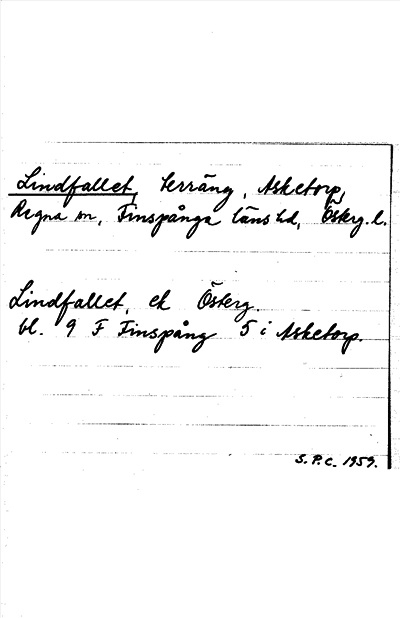 Lindfallet, terräng, Asketorp,
Regna sn, Finspånga läns hd, Österg. l.
Lindfallet, ek Österg.
bl. 9 F Finspång 5 i Asketorp.
S.P.C. 1959.